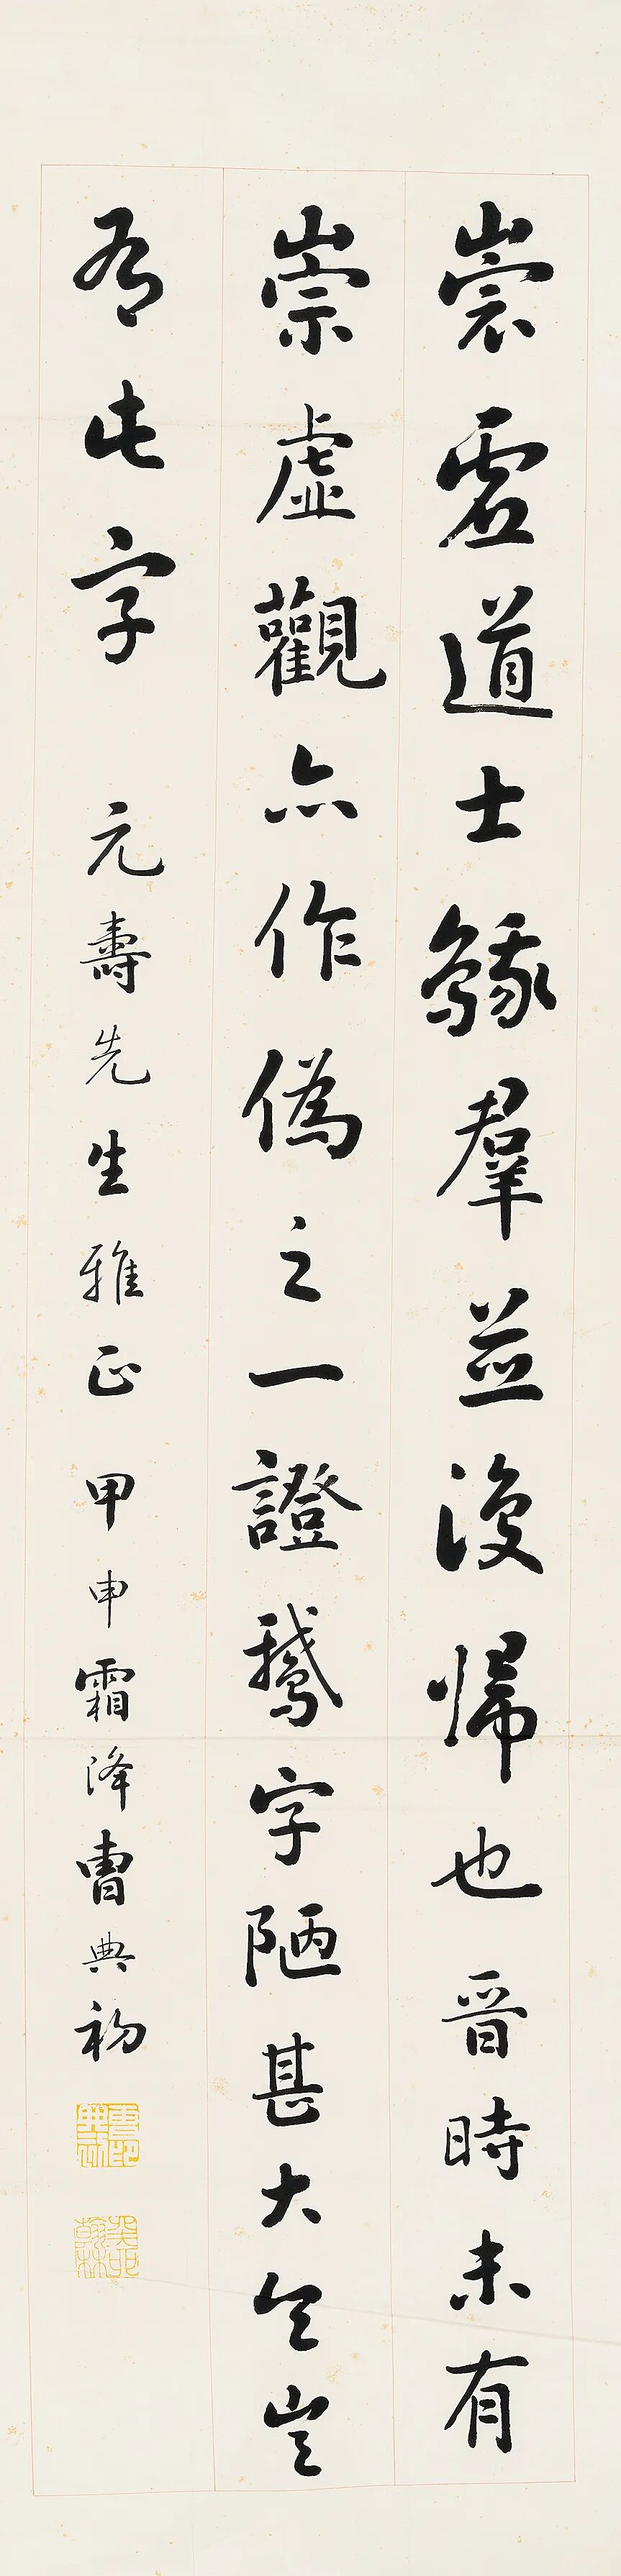 崇虛道士鵝羣並復歸也晉時未有
崇虛觀亦作偽之一證鵝字陋甚大令豈
有此字 元壽先生雅正 甲申霜降曹典初
曹印典初
翰林